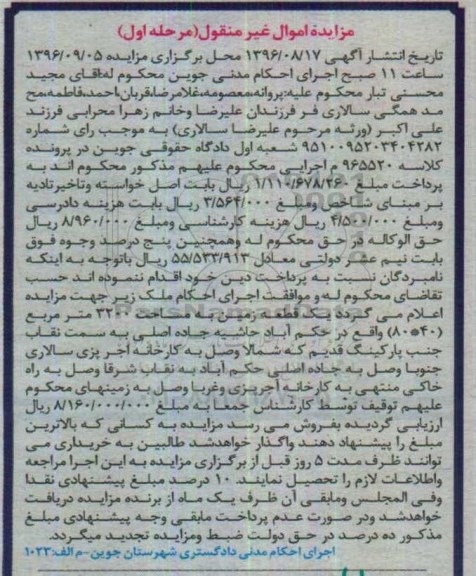 مزایده اموال غیر منقول(مرحله اول)
تاریخ انتشار آگهی ۱۳۹۶/۰۸/۱۷ محل برگزاری مزایده ۱۳۹۶/۰۹/۰۵
ساعت ۱۱ صبح اجرای احکام مدنی جوین محکوم له:آقای مجید
محسنی تبار محکوم علیه:پروانه،معصومه،غلامرضا،قربان،احمد،فاطمه،مح
مد همگی سالاری فر فرزندان علیرضا وخانم زهرا محرابی فرزند
علی اکبر (ورثه مرحوم علیرضا سالاری) به موجب رای شماره
۹۵۱۰۰۹۵۲۰۳۴۰۴۲۸۲ شعبه اول دادگاه حقوقی جوین در پرونده
کلاسه ۹۶۵۵۲۰ م اجرایی محکوم علیهم مذکور محکوم اند به
پرداخت مبلغ ۱/۱۱۰/۶۷۸/۲۶۰ ریال بابت اصل خواسته وتاخیرتادیه
بر مبنای شاخص ومبلغ ۳/۵۶۴/۰۰۰ ریال بابت هزینه دادرسی
ومبلغ ۴/۵۰۰/۰۰۰ ریال هزینه کارشناسی ومبلغ ۸/۹۶۰/۰۰۰ ریال
حق الوکاله در حق محکوم له وهمچنین پنج درصد وجوه فوق
بابت نیم عشر دولتی معادل ۵۵/۵۳۳/۹۱۳ ریال باتوجه به اینکه
نامبردگان نسبت به پرداخت دین خود اقدام ننموده اند حسب
تقاضای محکوم له و موافقت اجرای احکام ملک زیر جهت مزایده
اعلام می گردد یک قطعه زمین به مساحت ۳۲۰۰ متر مربع
(۴۰*۸۰) واقع در حکم آباد حاشیه جاده اصلی به سمت نقاب
جنب پارکینگ قدیم که شمالا وصل به کارخانه آجر پزی سالاری
جنوبا وصل به جاده اصلی حکم آباد به نقاب شرقا وصل به راه
خاکی منتهی به کارخانه آجرپزی وغربا وصل به زمینهای محکوم
علیهم توقیف توسط کارشناس جمعا به مبلغ ۸/۱۶۰/۰۰۰/۰۰۰ ریال
ارزیابی گردیده بفروش می رسد مزایده به کسانی که بالاترین
مبلغ را پیشنهاد دهند واگذار خواهدشد طالبین به خریداری می
توانند ظرف مدت ۵ روز قبل از برگزاری مزایده به این اجرا مراجعه
واطلاعات لازم را تحصیل نمایند. ۱۰ درصد مبلغ پیشنهادی نقدا
وفی المجلس ومابقی آن ظرف یک ماه از برنده مزایده دریافت
خواهدشد ودر صورت عدم پرداخت مابقی وجه پیشنهادی مبلغ
مذکور ده درصد در حق دولت ضبط ومزایده تجدید میگردد.
اجرای احکام مدنی دادگستری شهرستان جوین-م الف:۱۰۲۳